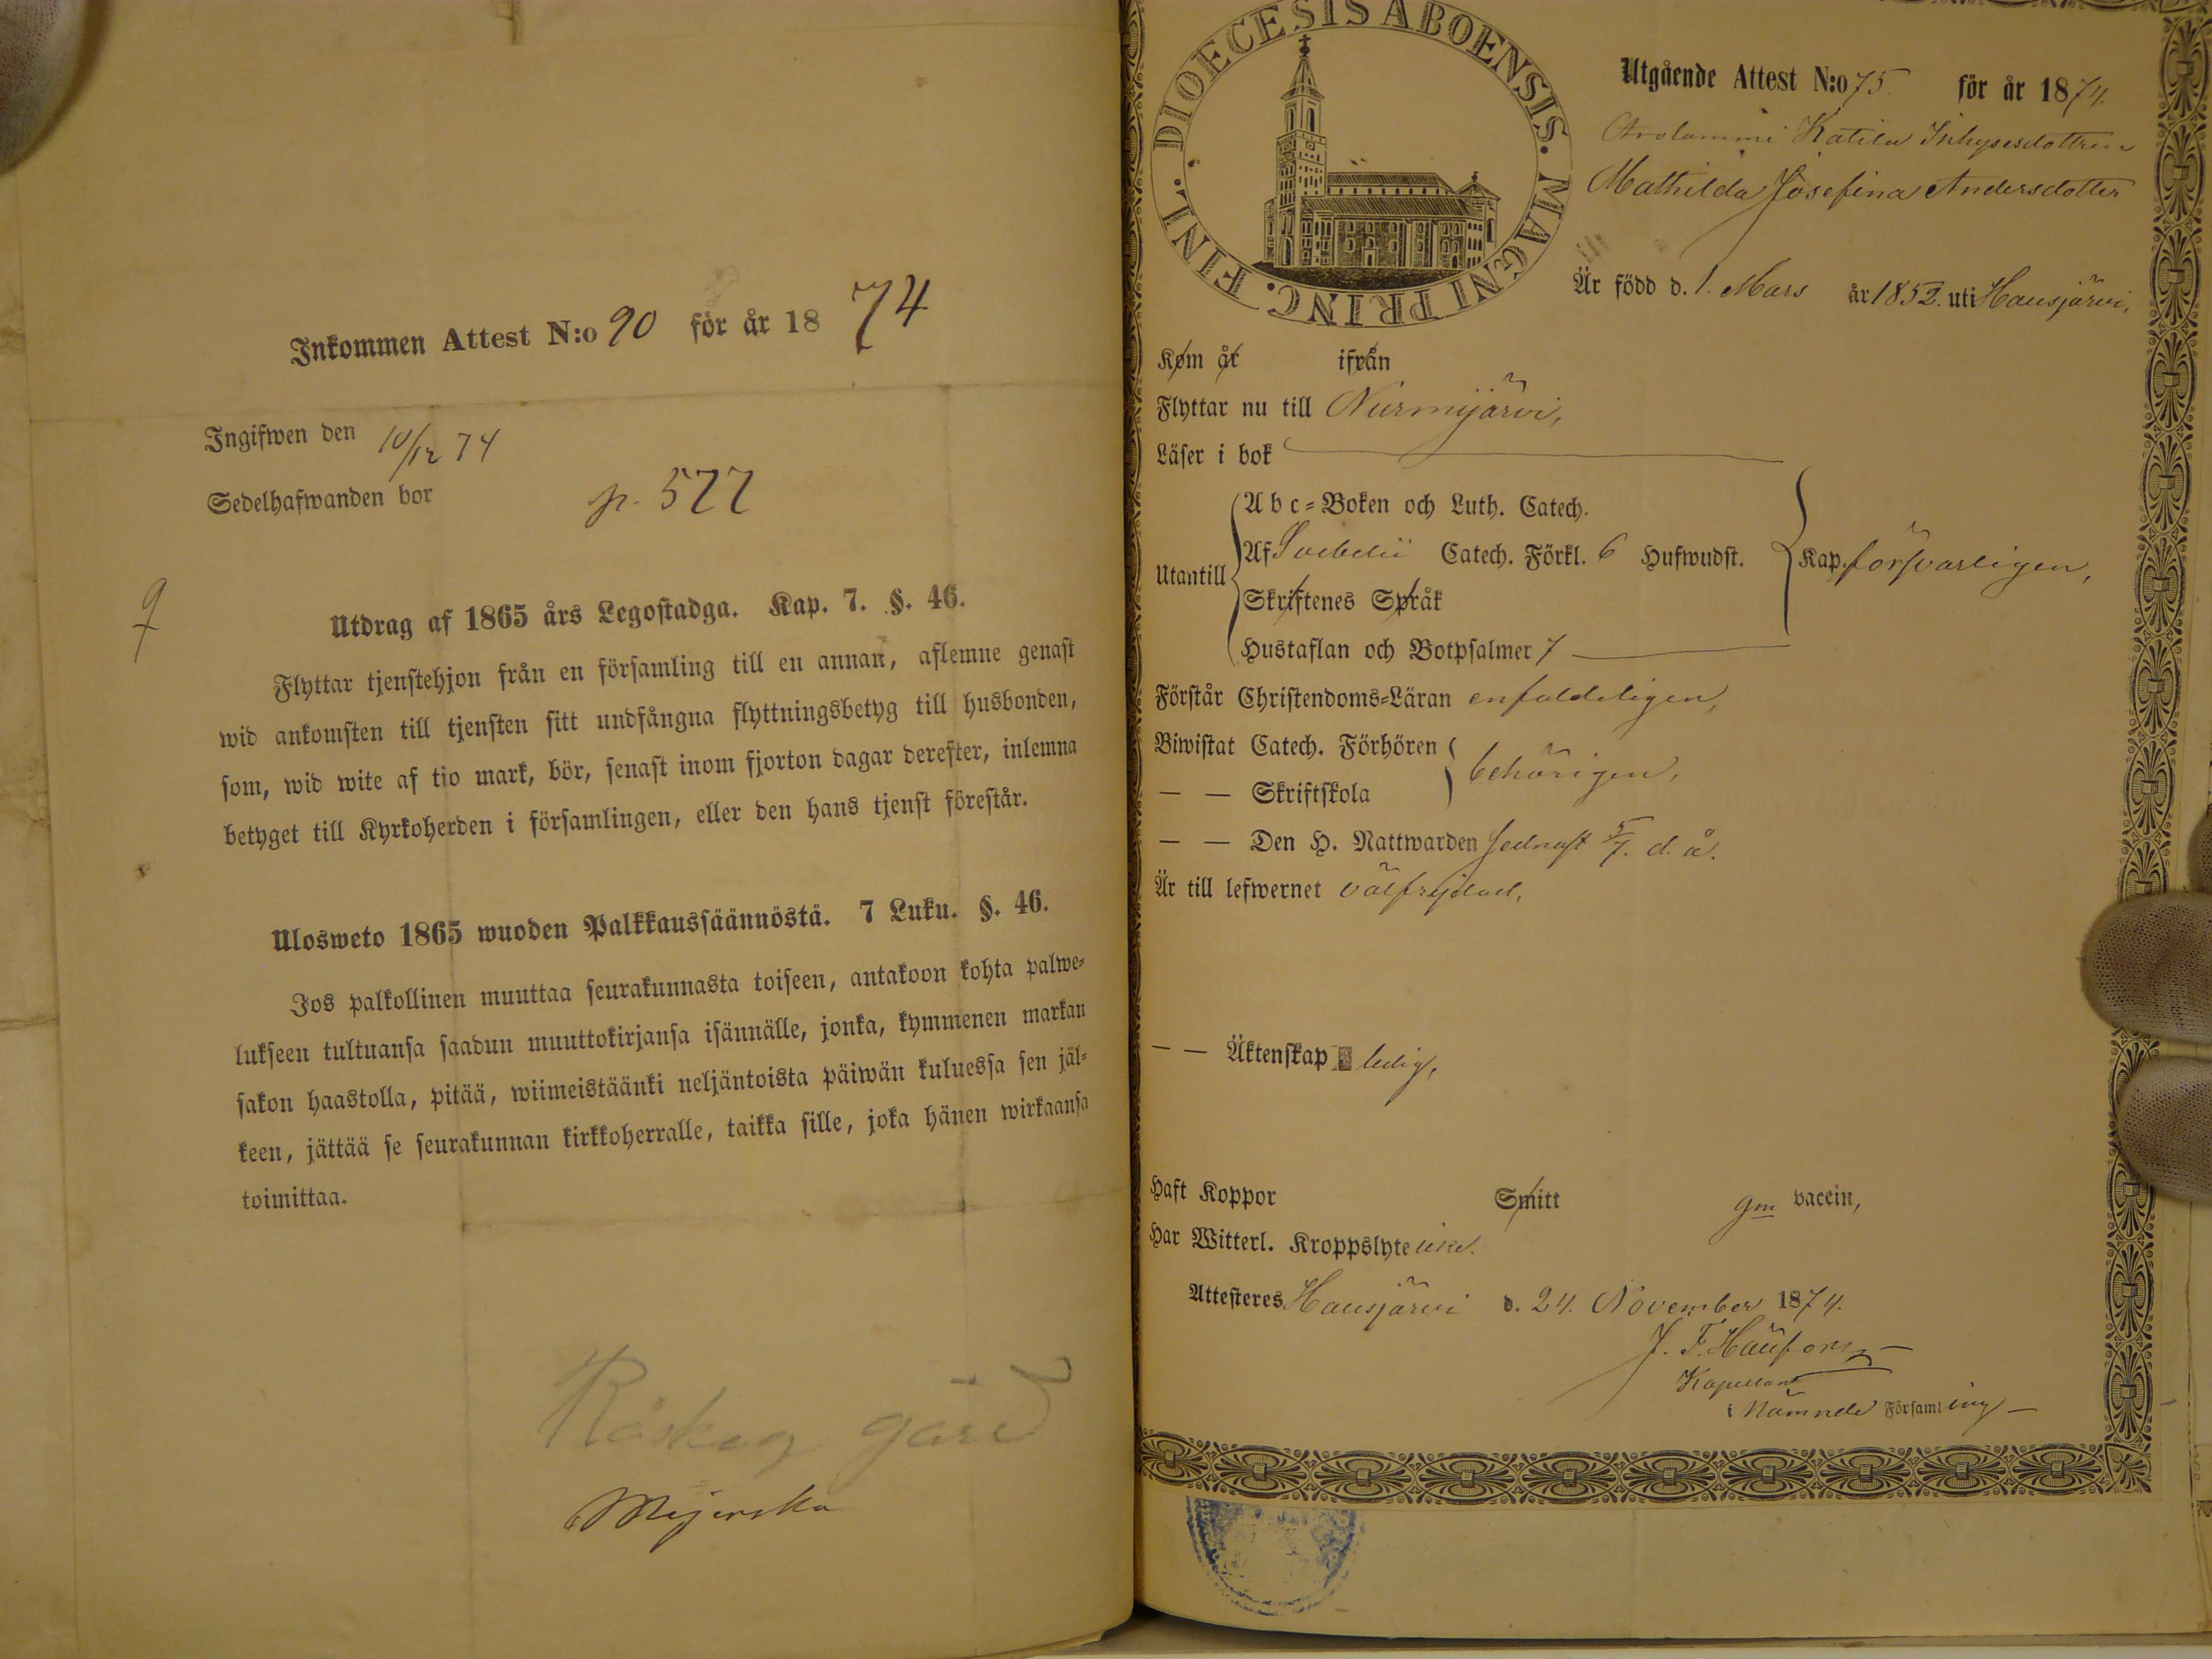 Inkommen Attest N:o 90 för år 1874
Ingifwen den 10/12 74
Sedelhafwanden bor p. 577
Utdrag af 1865 års Legostadga. Kap. 7. §. 46.
Flyttar tjenstehjon från en församling till en annan, aflemne genast
wid ankomsten till tjensten sitt undfångna flyttningsbetyg till husbonden,
som, wid wite af tio mark, bör, senast inom fjorton dagar derefter, inlemna
betyget till Kyrkoherden i församlingen, eller den hans tjenst förestår.
Ulosweto 1865 wuoden Palkkaussäännöstä. 7 Luku. §. 46.
Jos palkollinen muuttaa seurakunnasta toiseen, antakoon kohta palwe-
lukseen tultuansa saadun muuttokirjansa isännälle, jonka, kymmenen markan
sakon haastolla, pitää, wiimeistäänki neljäntoista päiwän kuluessa sen jäl-
keen, jättää se seurakunnan kirkkoherralle, taikka sille, joka hänen wirkaansa
toimittaa.
gård
Mejerska
DIOECESIS ABOENSIS. MAGNI PRINC. FINL.
Utgående Attest N:o 75. för år 1874.
Katila Inhysesdottren
Mathilda Josefina Andersdotter
Är född d. 1. Mars år 1852. uti Hausjärvi,
Kom år ifrån
Flyttar nu till Nurmijärvi,
Läser i bok
Utantill
A b c-Boken och Luth. Catech.
Af Svebelii Catech. Förkl. 6 Hufwudst.
Skriftenes Språk
Hustaflan och Botpsalmer 7
Kap. försvarligen,
Förstår Christendoms-Läran enfaldeligen,
Biwistat Catech. Förhören
— — Skriftskola
behörigen,
— — Den H. Nattwarden sednast 5/7. d. å.
Är till lefwernet välfrejdad,
— — Äktenskap ledig,
Haft Koppor Smitt gm vaccin,
Har Witterl. Kroppslyte icke.
Attesteres Hausjärvi d. 24. November 1874.
J. F.
Kapellan
i Nämnde Församling